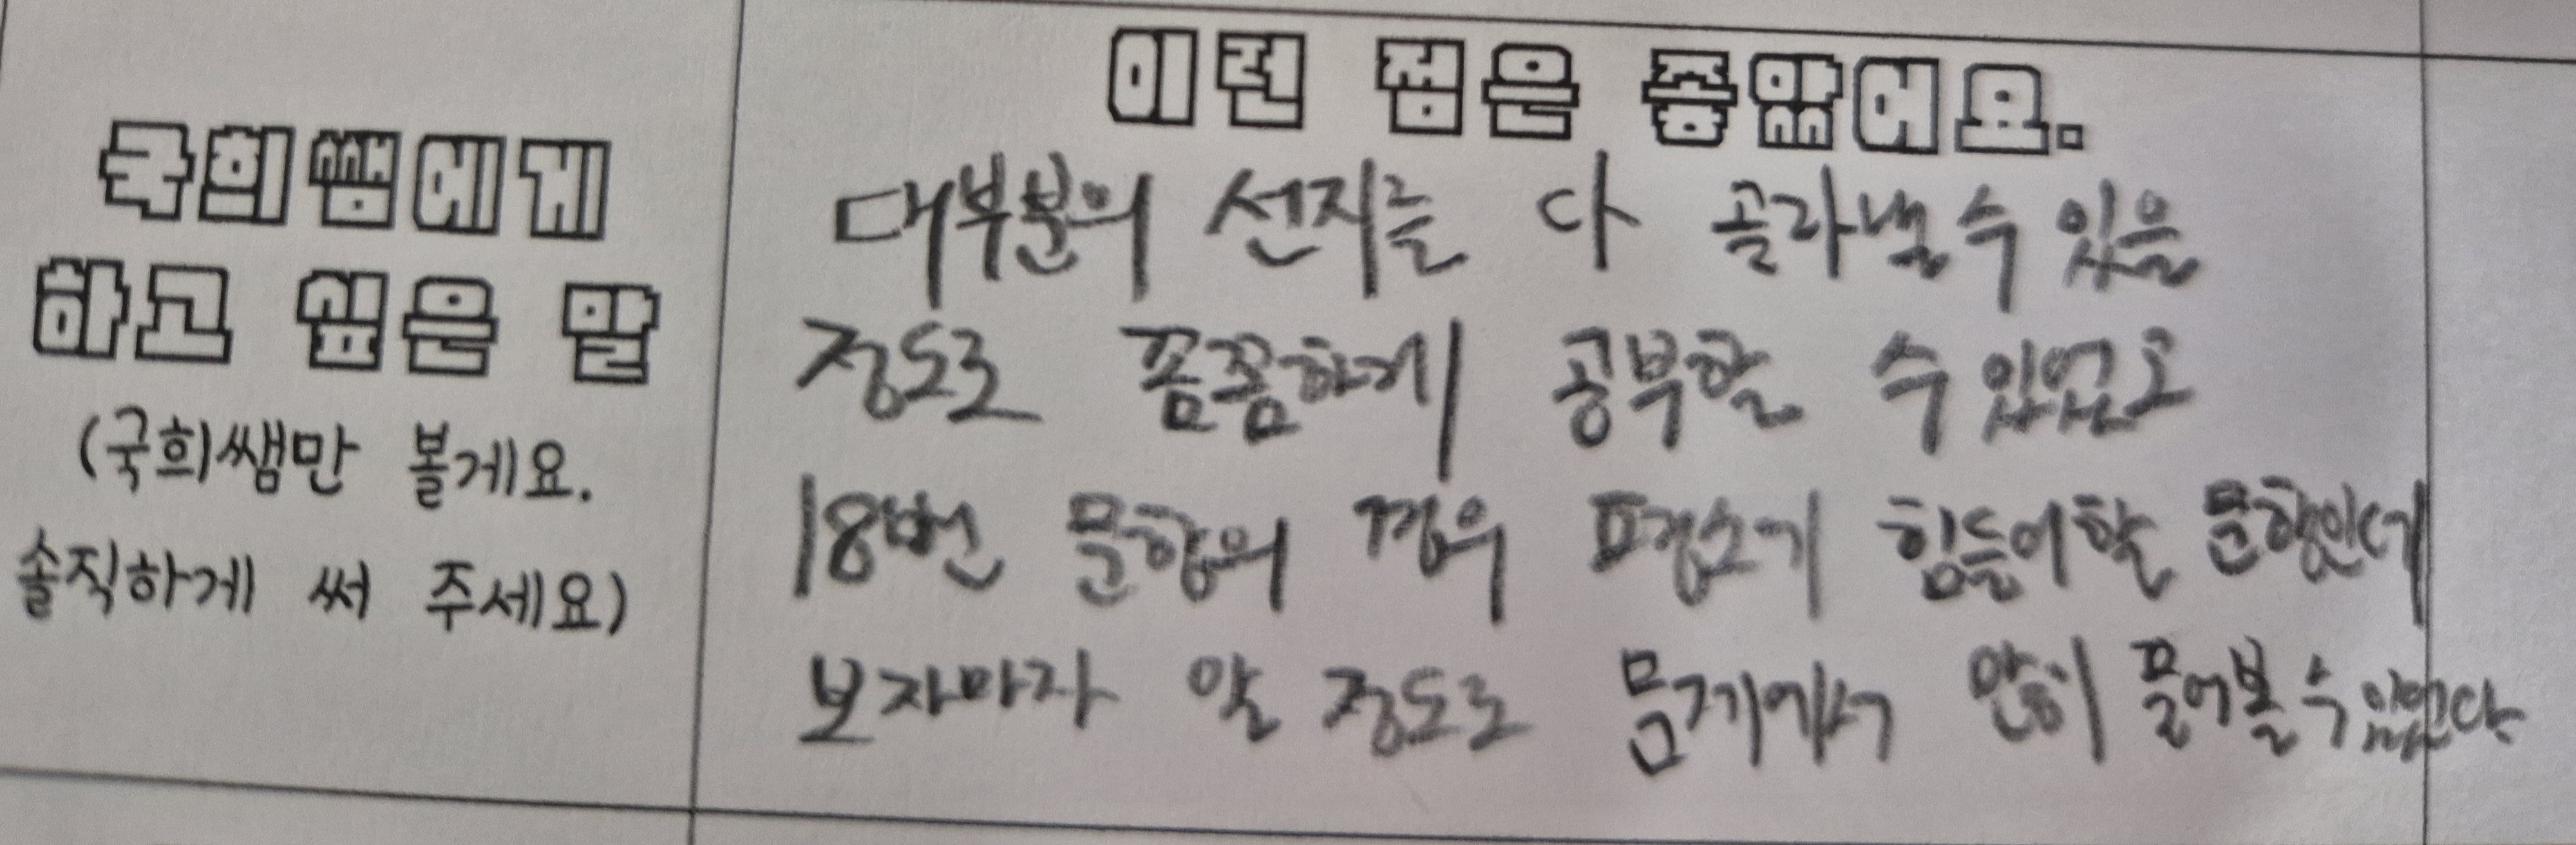 국희쌤에게
하고 싶은 말
(국희쌤만 볼게요.
솔직하게 써 주세요)
이런 점은 좋았어요.
대부분의 선지는 다 골라낼 수 있을
정도로 꼼꼼하게 공부할 수 있었고
18번 문항의 경우 평소에 힘들어할 문항인데
보자마자 알 정도로 문제에서 많이 풀어볼 수 있었다